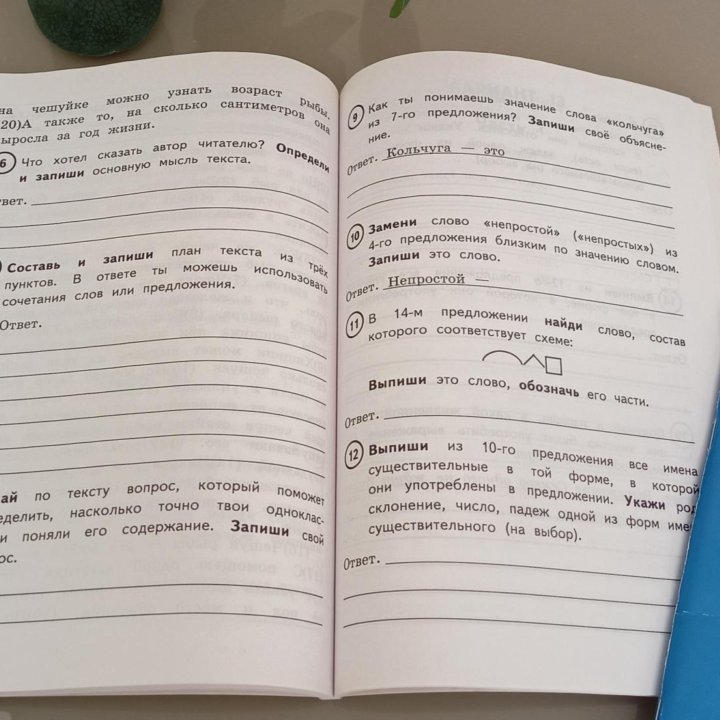 на чешуйке можно узнать возраст рыбы.
20)А также то, на сколько сантиметров она
выросла за год жизни.
6 Что хотел сказать автор читателю? Определи
и запиши основную мысль текста.
твет.
Составь и запиши план текста из трёх
пунктов. В ответе ты можешь использовать
сочетания слов или предложения.
Ответ.
ай по тексту вопрос, который поможет
еделить, насколько точно твои одноклас-
и поняли его содержание. Запиши свой
ос.
9 Как ты понимаешь значение слова «кольчуга»
из 7-го предложения? Запиши своё объясне-
ние.
Ответ. Кольчуга — это
10 Замени слово «непростой» («непростых») из
4-го предложения близким по значению словом.
Запиши это слово.
Ответ. Непростой —
11 В 14-м предложении найди слово, состав
которого соответствует схеме:
Выпиши это слово, обозначь его части.
Ответ.
12 Выпиши из 10-го предложения все имена
существительные в той форме, в которой
они употреблены в предложении. Укажи род,
склонение, число, падеж одной из форм имен
существительного (на выбор).
Ответ.